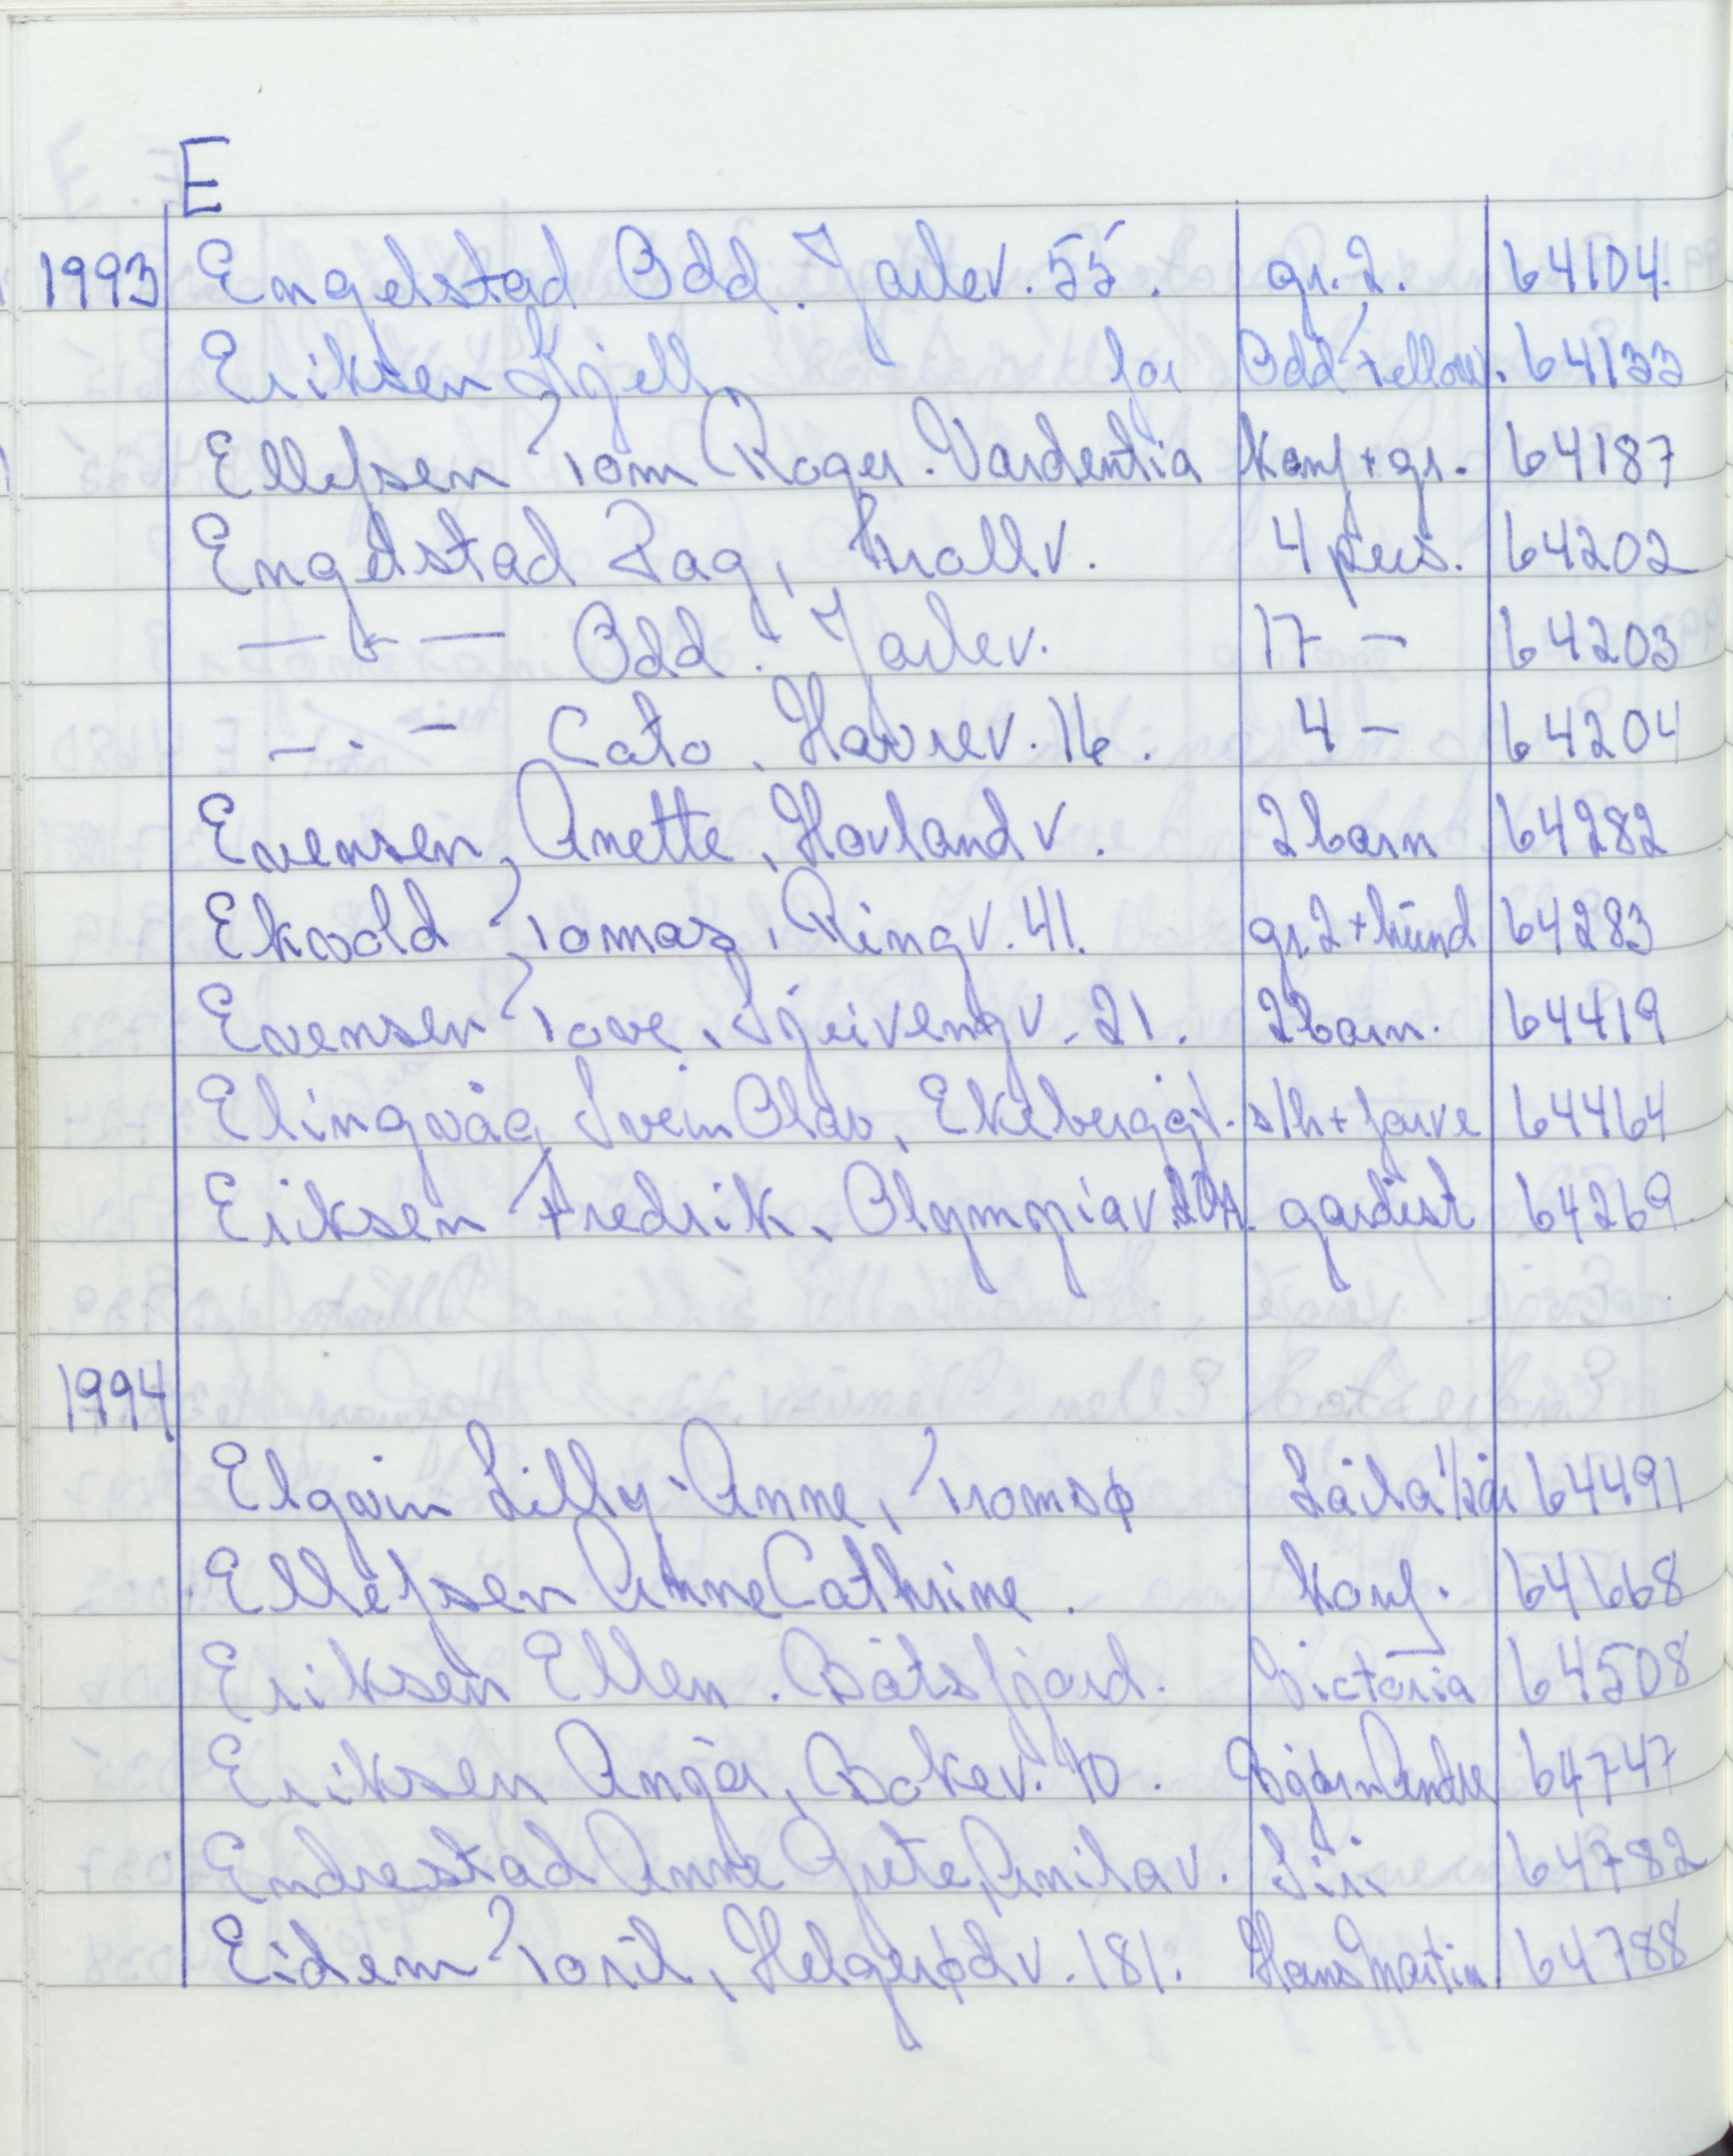 E
1993 Engelstad Odd. Jarlev. 55. gr. 2. 64104.
Eriksen Kjell, for Odd Fellow. 64133
Ellefsen Tom Roger. Vardentia Konf + gr. 64187
Engelstad Dag, Trollv. 4 pers. 64202
— " — Odd. Jarlev. 17 - 64203
— . - Cato, Havrev. 16. 4 - 64204
Evensen, Anette, Hovlandv. 2 barn 64282
Ekvold Tomas, Ringv. 41. gr. 2 + hund 64283
Evensen Tove, 21. 2 barn. 64419
Elingvåg Svein Olav, Ekebergg. s/h + farve 64464
Eriksen Fredrik, Olympiav. gardist 64269
1994
Elgvin Lilly-Anne, Tromsø Laila 1/2 år 64491
Ellefsen Anne Cathrine. Konf. 64668
Eriksen Ellen. Båtsfjord. Victoria 64508
Eriksen Anja, Bøkev. 10. Bjørn Andre 64747
Endrestad Anne Grete, Anilav. Siri 64782
Eidem Toril, Helgerødv. 181. Hans Martin 64788